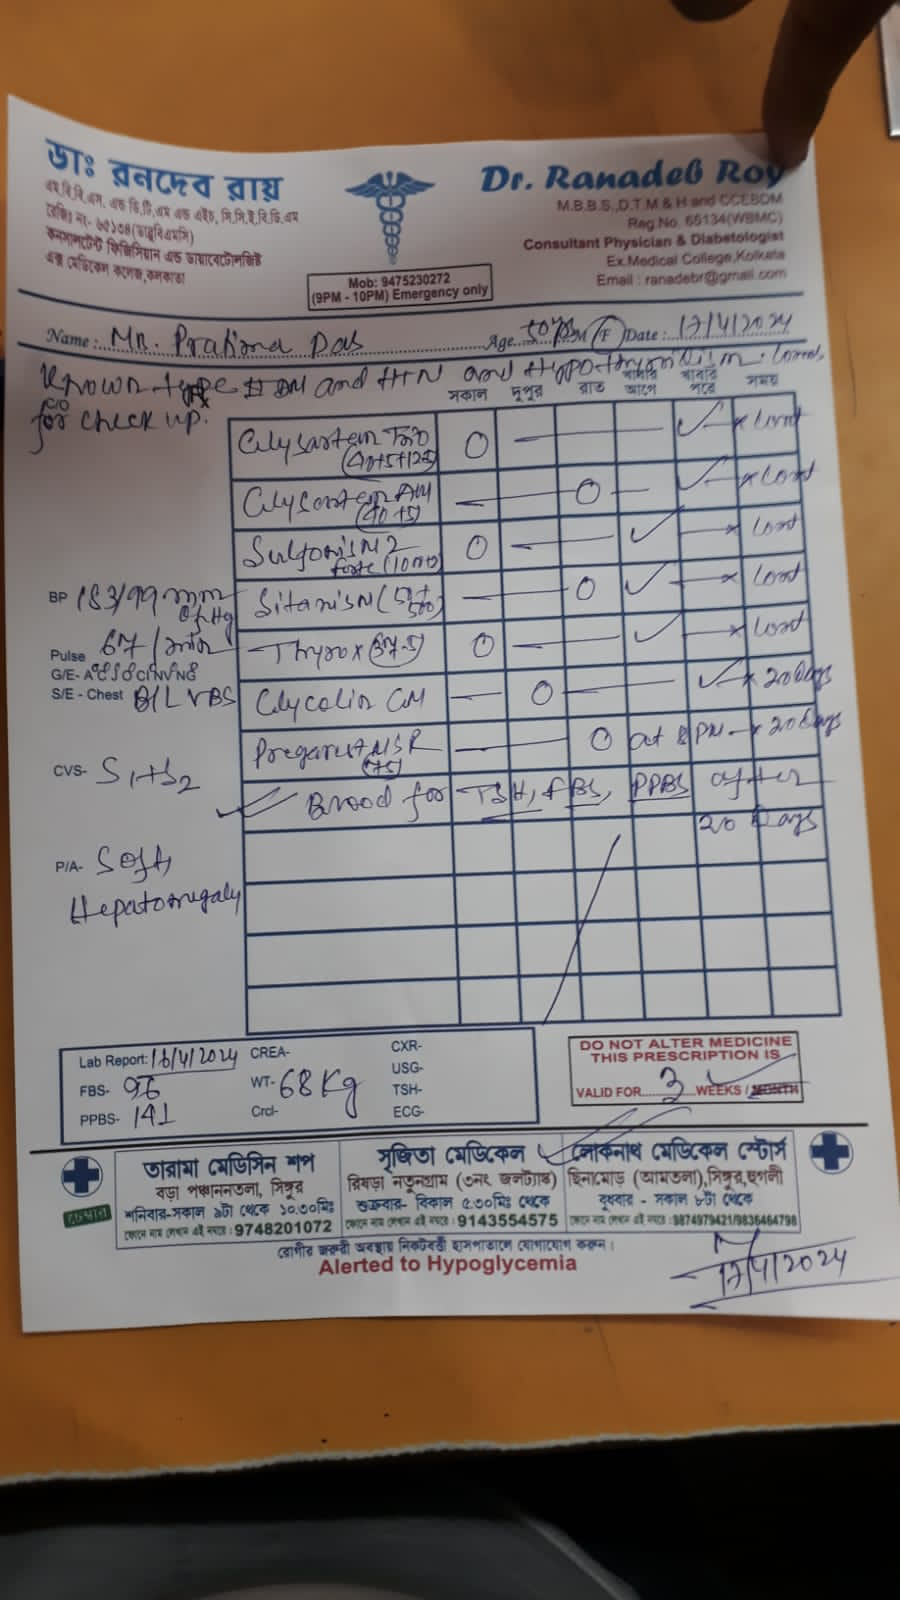 ডাঃ রনদেব রায়
এম.বি.বি.এস. এন্ড ডি.টি.এম এন্ড এইচ, সি.সি.ই.বি.ডি.এম
রেজিঃ নং- ৬৫১৩৪(ডাব্লুবিএমসি)
কনসালটেন্ট ফিজিসিয়ান এন্ড ডায়াবেটোলজিষ্ট
এক্স মেডিকেল কলেজ,কলকাতা
Mob: 9475230272
(9PM - 10PM) Emergency only
Dr. Ranadeb Roy
M.B.B.S.,D.T.M & H and CCEBDM
Reg.No. 65134(WBMC)
Consultant Physician & Diabetologist
Ex.Medical College,Kolkata
Email : ranadebr@gmail.com
Name : Mr. Pratima Das Age M/F Date : 17/4/2024
Known type II DM and HTN and Hypothyroidism. Cont.
C/O for check up.
সকাল দুপুর রাত খাবার আগে খাবার পরে সময়
(40+5+12.5) Cont
(40+5) Cont
2 forte (10 Cont
Cont
Thyrox (37.5) Cont
GM 20 Days
SR (75) at 8 PM 20 Days
Blood for TSH, FBS, PPBS after
20 Days
BP 183/99 mm of Hg
Pulse 67/min
G/E-
S/E - Chest B/L VBS
CVS- S1+S2
P/A- Soft,
Hepatomegaly
Lab Report: 16/4/2024 CREA- CXR-
FBS- 96 WT- 68 Kg USG-
TSH-
PPBS- 141 Crcl- ECG-
DO NOT ALTER MEDICINE
THIS PRESCRIPTION IS
VALID FOR 3 WEEKS / MONTH
চেম্বার
তারামা মেডিসিন শপ
বড়া পঞ্চাননতলা, সিঙ্গুর
শনিবার-সকাল ৯টা থেকে ১০.৩০মিঃ
ফোনে নাম লেখান এই নম্বরে : 9748201072
সৃজিতা মেডিকেল
রিষড়া নতুনগ্রাম (৩নং জলট্যাঙ্ক)
শুক্রবার- বিকাল ৫.৩০মিঃ থেকে
ফোনে নাম লেখান এই নম্বরে : 9143554575
লোকনাথ মেডিকেল স্টোর্স
ছিনামোড় (আমতলা),সিঙ্গুর,হুগলী
বুধবার - সকাল ৮টা থেকে
ফোনে নাম লেখান এই নম্বরে :9874979421/9836464798
রোগীর জরুরী অবস্থায় নিকটবর্তী হাসপাতালে যোগাযোগ করুন।
Alerted to Hypoglycemia
17/4/2024